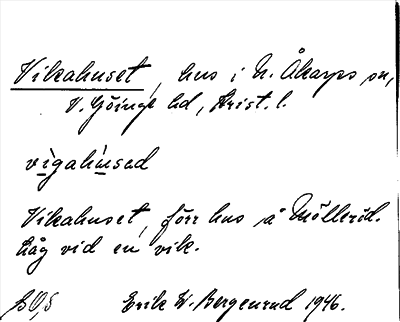 Vikahuset, hus i N. Åkarps sn,
V. Göinge hd, Krist. l.
vigahused
Vikahuset, förr hus å Mölleröd.
Låg vid en vik.
Erik W. Bergenrud 1946.